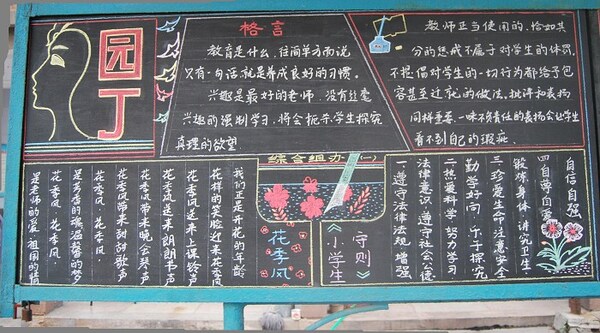 园丁
格言
教育是什么，往简单方面说
只有一句话,就是养成良好的习惯。
兴趣是最好的老师，没有丝毫
兴趣的强制学习，将会扼杀学生探究
真理的欲望.
教师正当使用的、恰如其
分的惩戒不属于对学生的体罚。
不提倡对学生的一切行为都给予包
容甚至迁就的做法,批评和表扬
同样重要,一味不负责任的表扬会让学生
看不到自己的瑕疵.
综合组办(一)
花季风
我们正是开花的年龄
花样的笑脸迎来花季风
花季风送来上课铃声
花季风送来朗朗书声
花季风带来晚会琴声
花季风带来刮刮歌声
花季风 花季风
是多杏的璀温馨的梦
花季风 花季风
是老师的爱 祖国的情
《小学生
守则》
一遵守法律法规 增强
法律意识 遵守社会公德
二热爱科学 努力学习
勤学好问 乐于探究
三珍爱生命 注意安全
锻炼身体 讲究卫生
四自尊自爱
自信自强